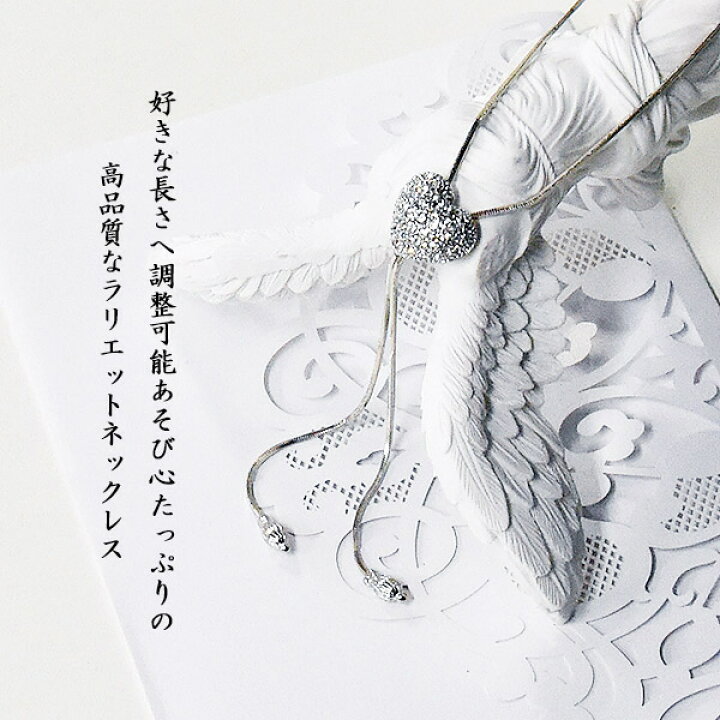 好きな長さへ調整可能あそび心たっぷりの
高品質なラリエットネックレス